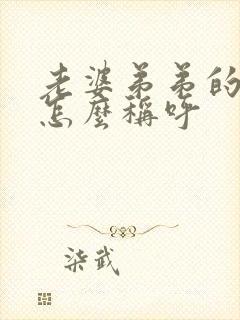 老婆弟弟的
怎麼稱呼
柒武